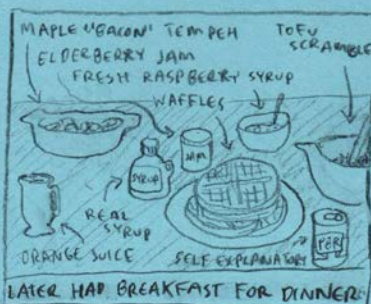 MAPLE "BACON" TEMPEH
TOFU
SCRAMBLE
ELDERBERRY JAM
FRESH RASPBERRY SYRUP
WAFFLES
JAM
SYRUP
REAL
SYRUP
ORANGE JUICE
SELF EXPLANATORY
PBR
LATER HAD BREAKFAST FOR DINNER